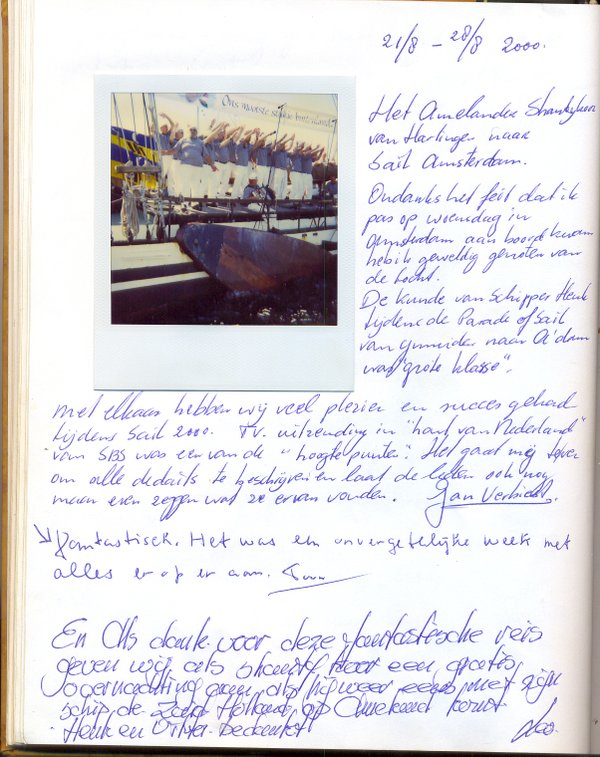 21/8 - 28/8 2000.
Ons mooiste stukje buitenland.
Het Amelander Shantykoor
van Harlingen naar
Sail Amsterdam.
Ondanks het feit dat ik
pas op woensdag in
Amsterdam aan boord kwam
heb ik geweldig genoten van
de tocht.
De kunde van Schipper Henk
tijdens de Parade of Sail
van ymuiden naar A'dam
was "grote klasse".
met elkaar hebben wij veel plezier en succes gehad
tijdens Sail 2000. TV. uitzending in "hart van Nederland"
van SBS was een van de "hoogtepunten". Het gaat mij te ver
om alle details te beschrijven laat de leden ook nog
maar even zeggen wat ze ervan vonden. Jan
Fantastisch. Het was een onvergetelijke week met
alles er op er aan.
En Als dank voor deze fantastische reis
geven wij als shanty koor een gratis
overnachting aan, als hij weer eens met zijn
schip de Zuid Holland op Ameland komt.
Henk en bedankt